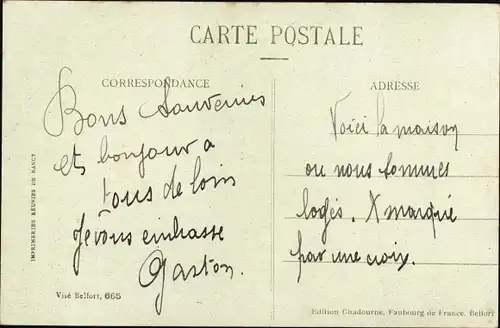 CARTE POSTALE
CORRESPONDANCE
Bons Souvenirs
et bonjour a
tous de loin
Je vous embrasse
Gaston.
Visé Belfort, 665
IMPRIMERIES RÉUNIES DE NANCY
ADRESSE
Voici la maison
ou nous sommes
logés. X marqué
par une croix.
Edition Chadourne, Faubourg de France, Belfort